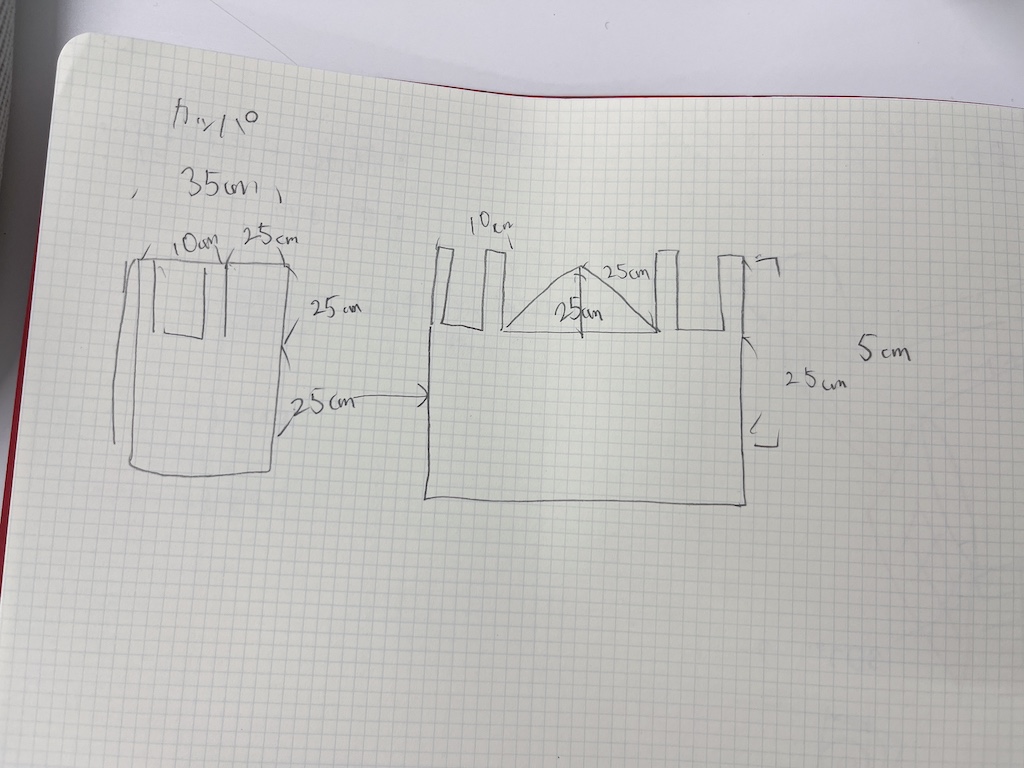 カッパ
35cm
10cm 25cm
25cm
25cm
10cm
25cm
25cm
5cm
25cm